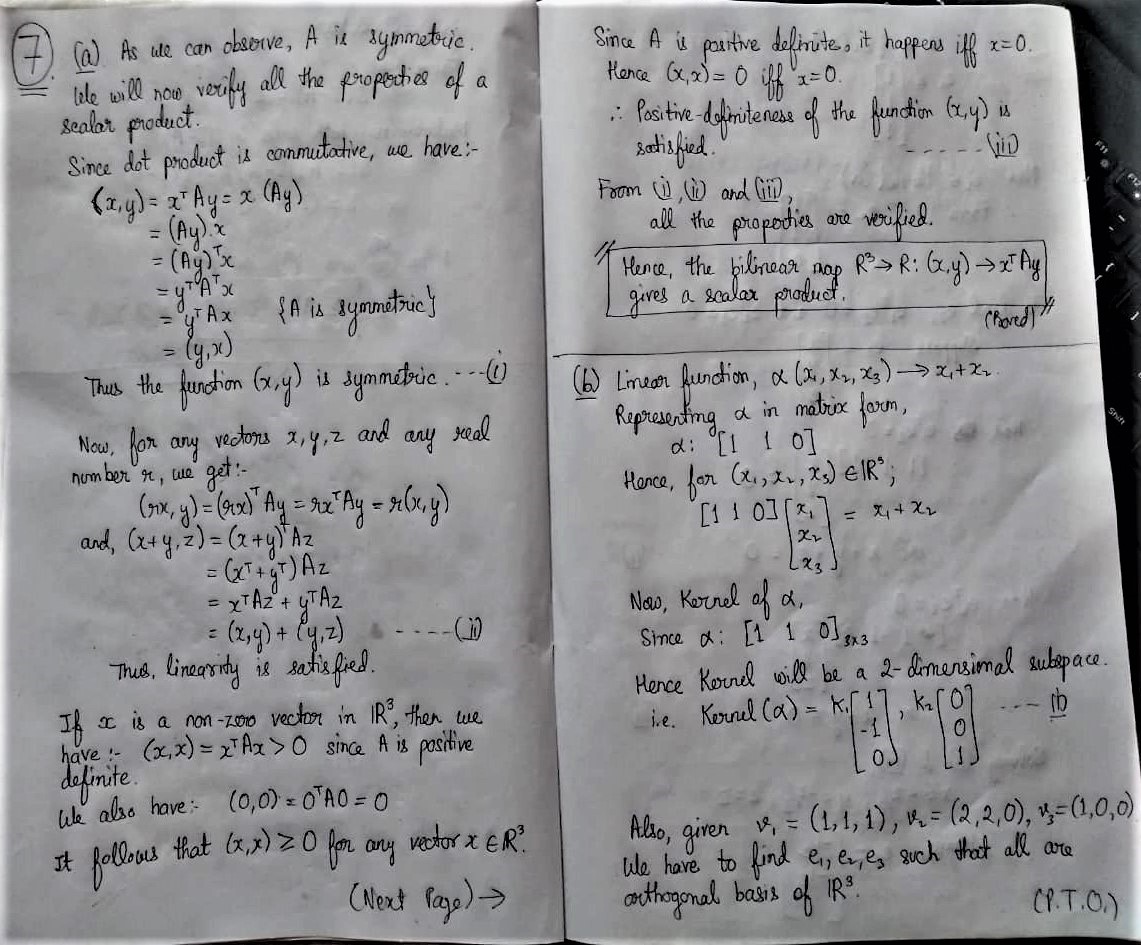 7 (a) As we can observe, A is symmetric.
We will now verify all the properties of a
scalar product.
Since dot product is commutative, we have:-
(x,y) = xᵀAy = x (Ay)
= (Ay).x
= (Ay)ᵀx
= yᵀAᵀx
= yᵀAx {A is symmetric}
= (y,x)
Thus the function (x,y) is symmetric. ---(i)
Now, for any vectors x,y,z and any real
number r, we get:-
(rx, y) = (rx)ᵀAy = rxᵀAy = r(x,y)
and, (x+y, z) = (x+y)ᵀAz
= (xᵀ+yᵀ) Az
= xᵀAz + yᵀAz
= (x,y) + (y,z) ----(ii)
Thus, linearity is satisfied.
If x is a non-zero vector in ℝ³, then we
have:- (x,x) = xᵀAx > 0 since A is positive
definite.
We also have:- (0,0) = 0ᵀA0 = 0
It follows that (x,x) ≥ 0 for any vector x ∈ ℝ³.
(Next Page) →
Since A is positive definite, it happens iff x=0.
Hence (x,x) = 0 iff x=0.
∴ Positive-definiteness of the function (x,y) is
satisfied. -----(iii)
From (i), (ii) and (iii),
all the properties are verified.
Hence, the bilinear map R³→R: (x,y)→xᵀAy
gives a scalar product.
(Proved)
(b) Linear function, α (x₁, x₂, x₃) → x₁+x₂.
Representing α in matrix form,
α: [1 1 0]
Hence, for (x₁, x₂, x₃) ∈ ℝ³;
[1 1 0] [x₁ = x₁+x₂
x₂
x₃]
Now, Kernel of α,
Since α: [1 1 0]₃ₓ₃
Hence Kernel will be a 2-dimensional subspace.
i.e. Kernel (α) = K₁ [1 , K₂ [0 ---
-1 0
0] 1]
Also, given v₁ = (1,1,1), v₂ = (2,2,0), v₃=(1,0,0).
We have to find e₁, e₂, e₃ such that all are
orthogonal basis of ℝ³.
(P.T.O.)